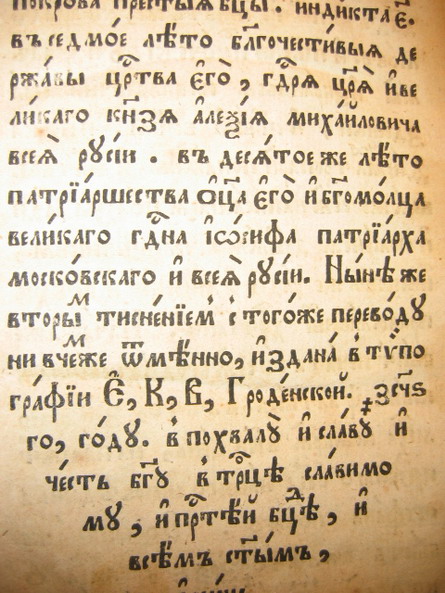 покрова престы́ѧ бцы . индикта є҃.
въ седмо́е лѣ́то блг҃очести́выѧ де
ржа́вы црⷭ҇тва єго̀, гдⷭ҇рѧ цр҃ѧ̀ и҆ ве
ли́каго кн҃зѧ а҆леѯі́ѧ миха́йловича
всеѧ̀ русі́и . въ десѧ́тое же лѣ́то
патрїа́ршества ѻ҆ц҃а̀ єго̀ и҆ бг҃омо́лца
вели́каго гдⷭ҇на і҆ѡ́сифа патрїа́рха
моско́вскаго и҆ всеѧ̀ русі́и. Ны́нѣ же
вторыⷨ тисне́нїеⷨ с тогоже перево́ду
ни в чеⷨже ѿмѣ́нно, и҆здана̀ в тѵ҆по
гра́фїи Є҃, К, В, Гроде́нской. ҂зсч҃ѕ
го, го́ду. в похвалꙋ̀ и҆ сла́вꙋ и҆
че́сть бг҃ꙋ в трⷪ҇цѣ сла́вимо
му, и҆ прⷭ҇тѣ́й бцⷣѣ, и҆
всѣ́мъ ст҃ы́мъ,